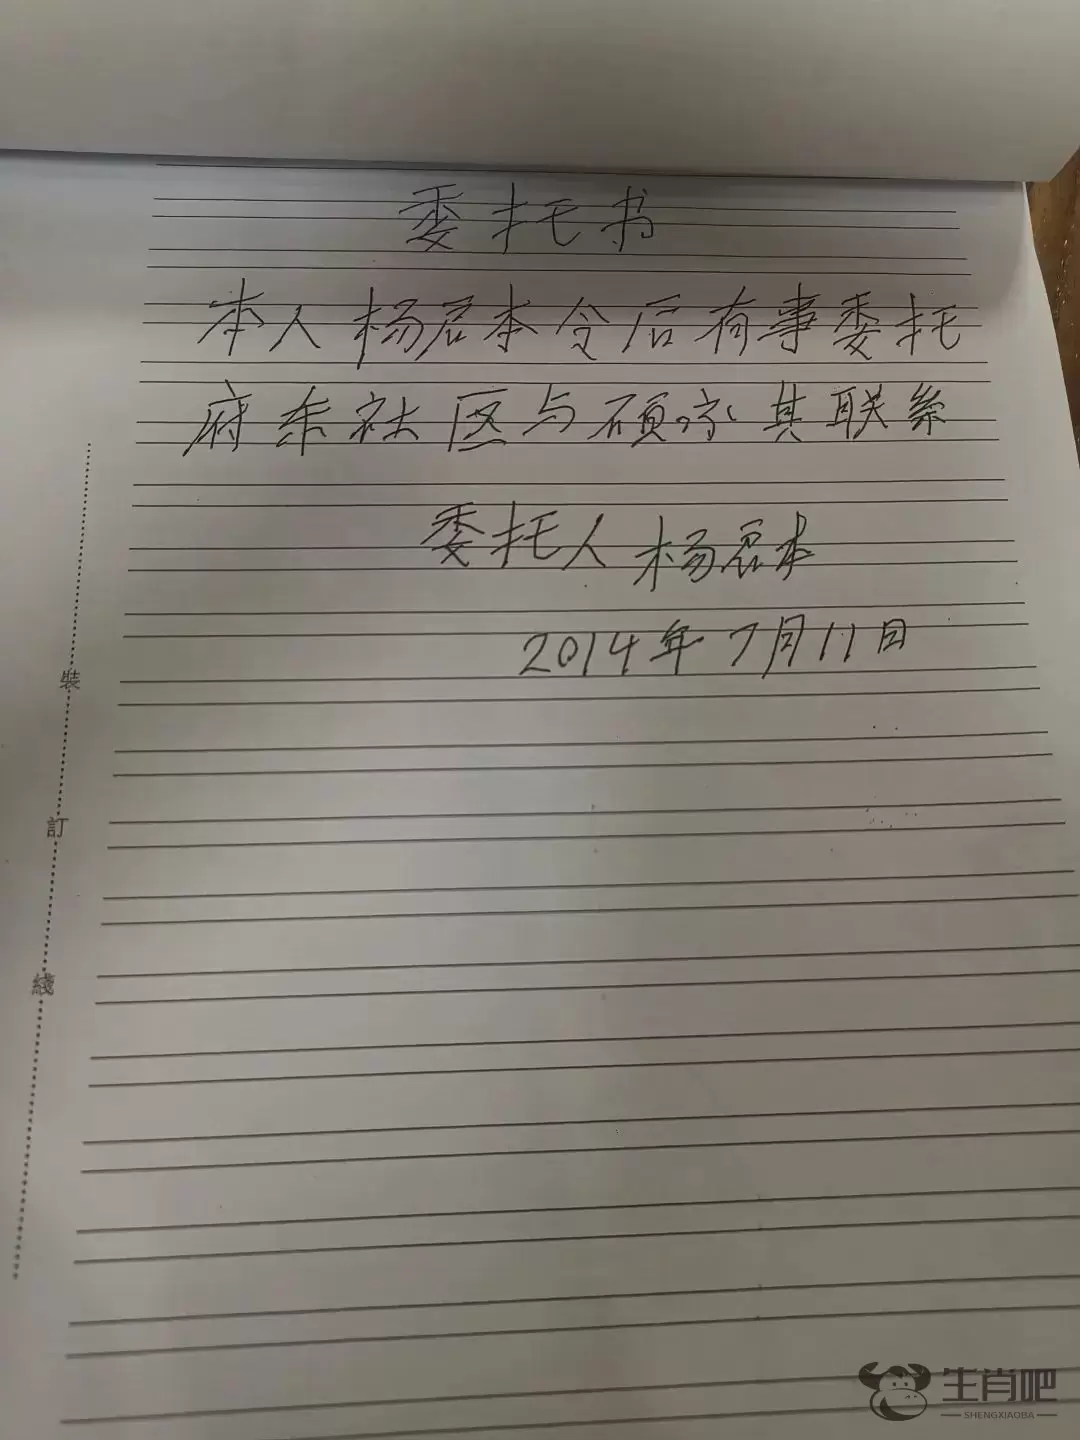 委托书
本人杨君本令后有事委托
府东社区与硕放其联系
委托人 杨君本
2014年7月11日
裝
訂
綫
生肖吧
SHENGXIAOBA